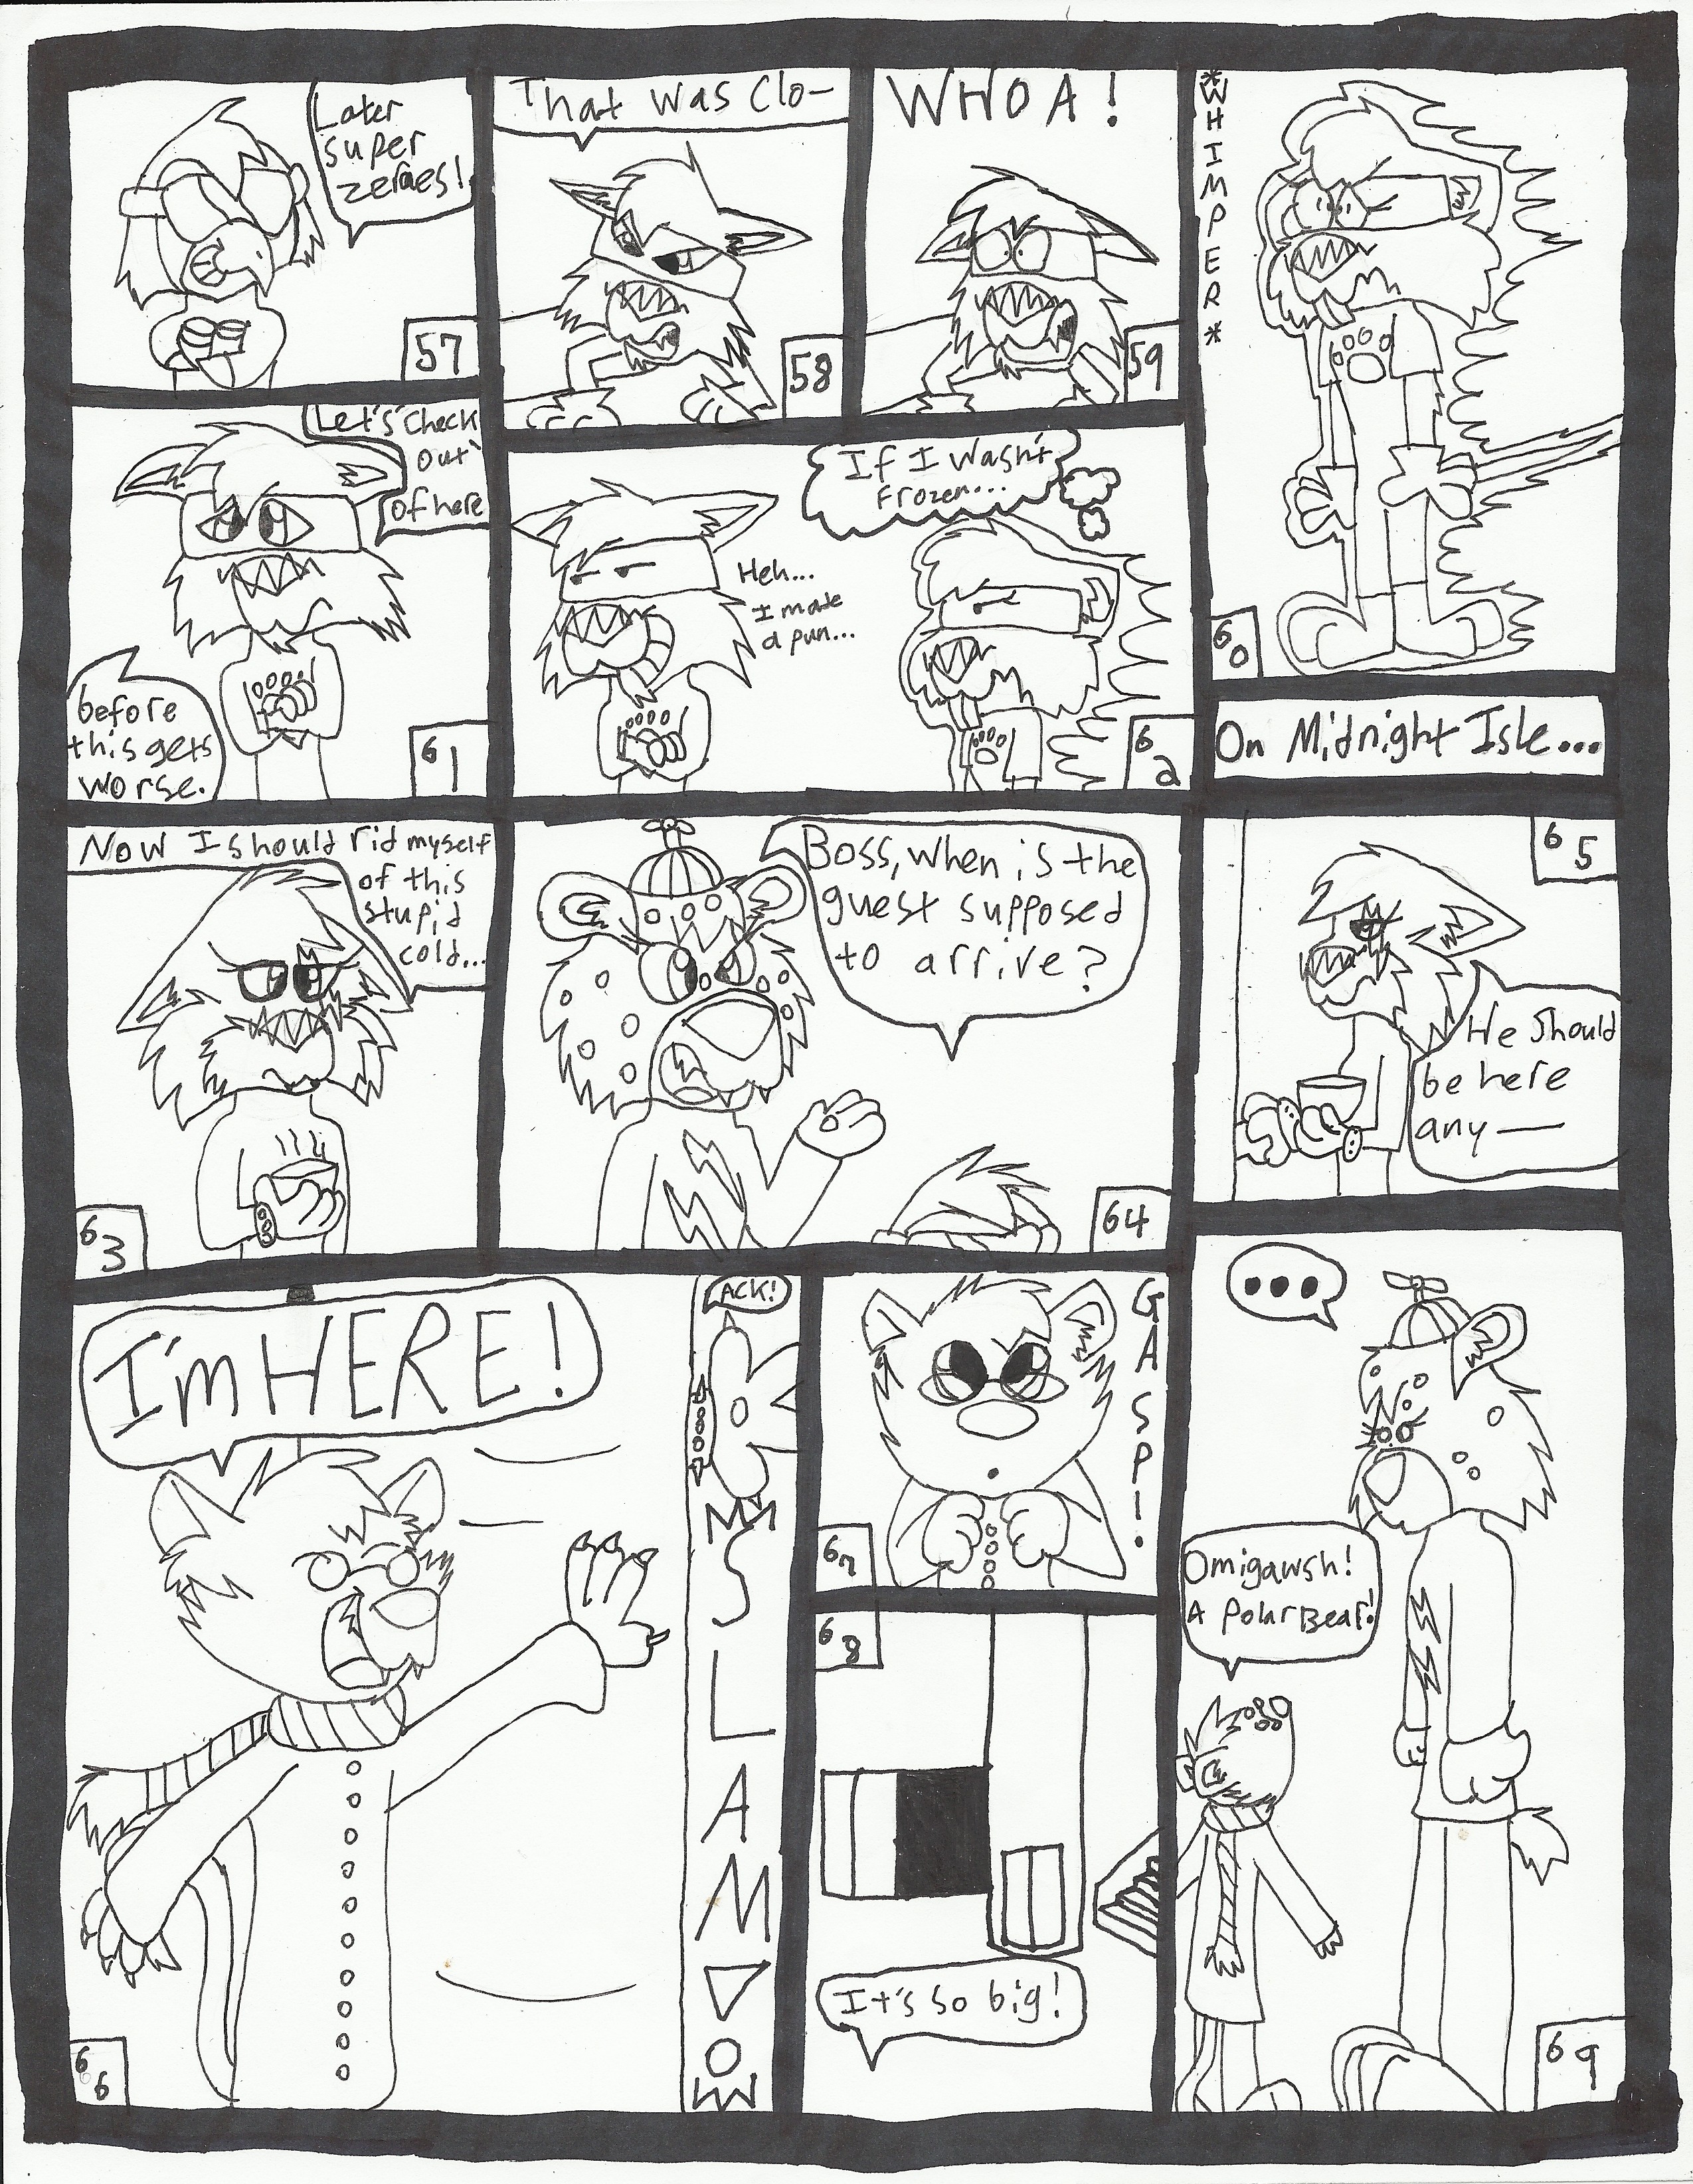 Later
super
zeroes!
57
That was Clo-
58
WHOA!
59
*WHIMPER*
60
Let's Check
out
of here
before
this gets
worse.
61
Heh...
I made
a pun...
If I wasn't
Frozen...
62
On Midnight Isle...
Now I should rid myself
of this
stupid
cold...
63
Boss, when is the
guest supposed
to arrive?
64
65
He should
be here
any—
I'm HERE!
ACK!
SLAM!
66
GASP!
67
68
It's so big!
...
Omigawsh!
A Polar Bear!
69